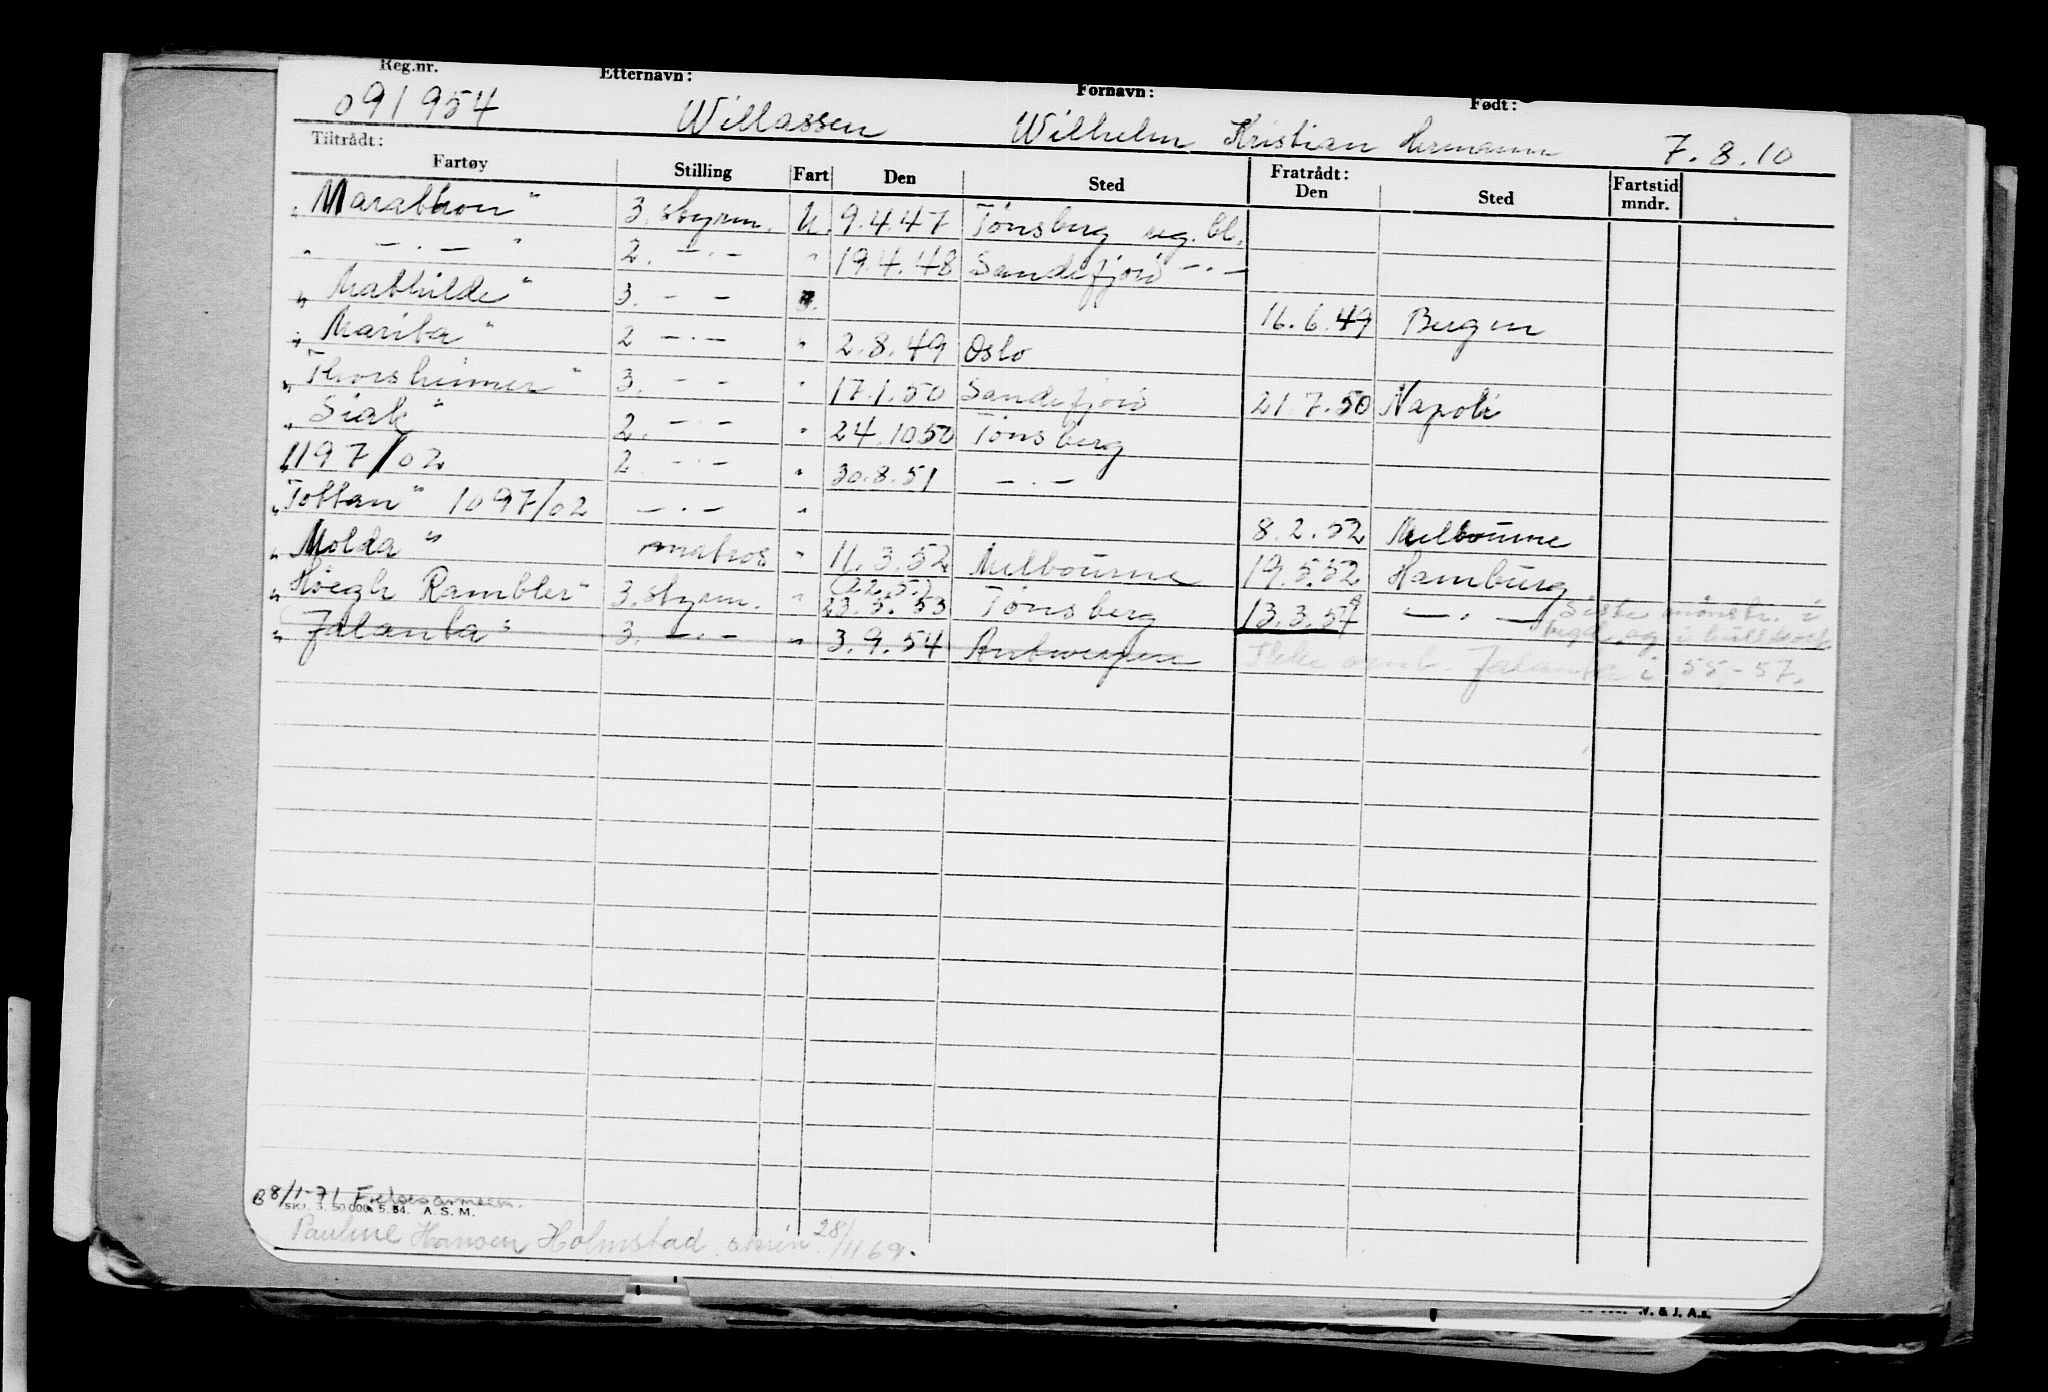 Reg.nr. Etternavn: Fornavn: Født:
091954 Willassen Wilhelm Kristian Hermann 7.8.10
Tiltrådt: Fratrådt:
Fartøy Stilling Fart Den Sted Den Sted Fartstid mndr.
„Marathon" 3. styrm. U. 9.4.47 Tønsberg reg. bl.
„ —·— " 2. —·— " 19.4.48 Sandefjord —·—
„Mathilde" 3. — — 16.6.49 Bergen
„Marita" 2 —·— " 2.8.49 Oslo
„Thorsheimer" 3. — — " 17.1.50 Sandefjord 21.7.50 Napoli
„Siak" 2. —·— " 24.10 50 Tønsberg
1197/02 2. —·— " 30.8.51 —·—
„Tottan" 1097/02 —·— " 8.2.52 Melbourne
„Molda" matros " 11.3.52 Melbourne 19.5.52 Hamburg
„Høegh Rambler" 3. styrm. " (22.5.) 23.5.53 Tønsberg 13.3.54 —·— Siste mønstr. i
„Jalanta" 3. —·— " 3.9.54 Antwerpen Ikke omb. Jalanta i 55-57.
B 8/1-71
SKJ. 3. 50 000. 5. 54. A. S. M.
Pauline Hansen Holmstad skriv 28/11 69.
V. & J. A.s.